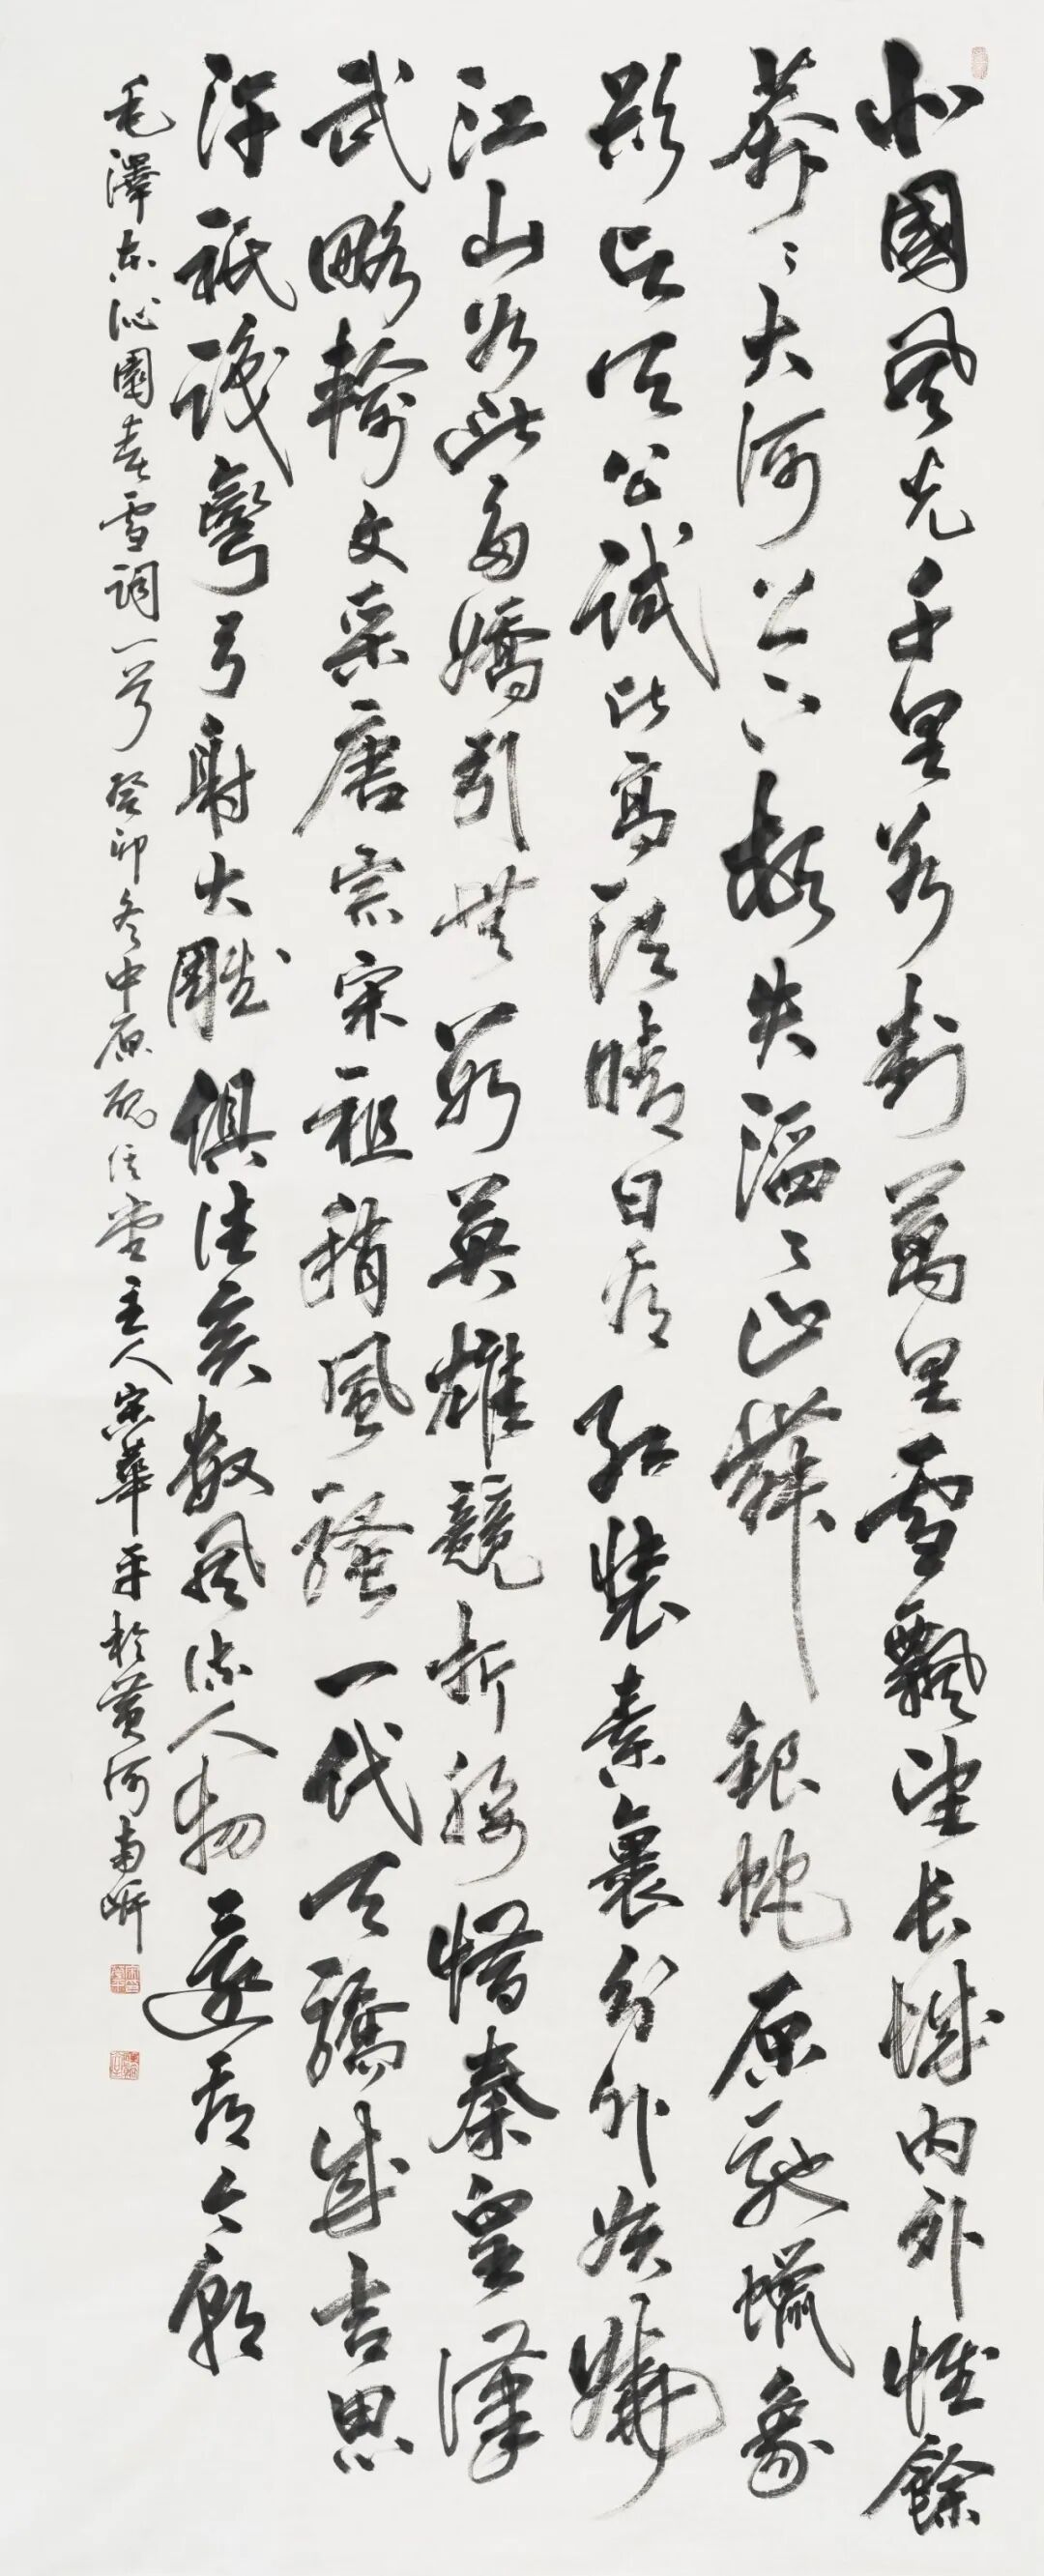 北國風光千里冰封萬里雪飄望長城內外惟餘
莽〻大河上下頓失滔〻山舞銀蛇原馳蠟象
欲與天公試比高須晴日看紅裝素裹分外妖嬈
江山如此多嬌引無數英雄競折腰惜秦皇漢
武略輸文采唐宗宋祖稍風騷一代天驕成吉思
汗祇識彎弓射大雕俱往矣數風流人物還看今朝
毛澤東沁園春雪詞一首癸卯冬中原堂主人宋華平於黃河南岸